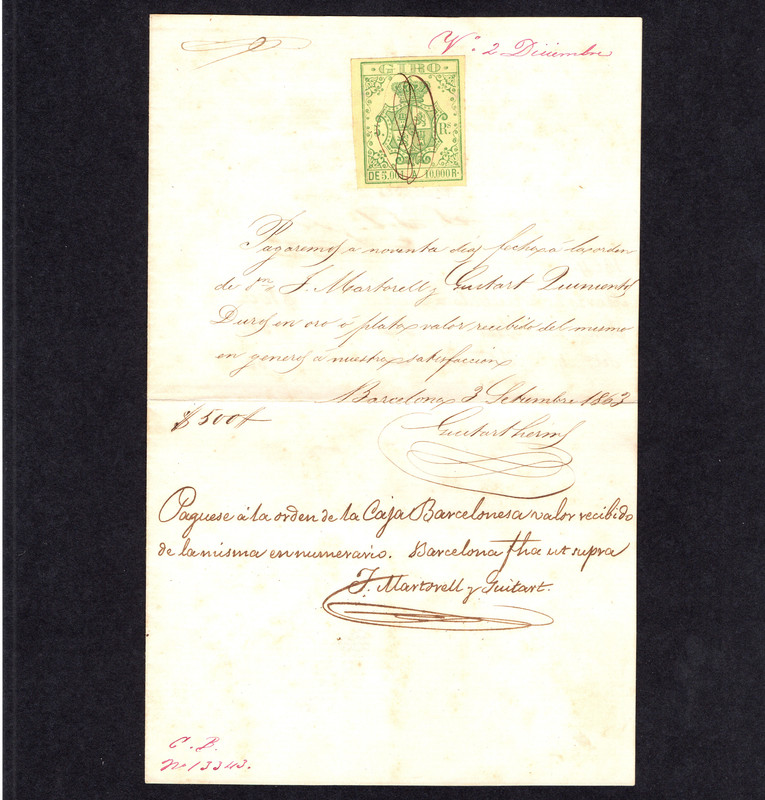 Vº 2 Diciembre
GIRO
5. Rs.
DE 5.00 A 10.000 R.
Pagaremos a noventa dias fecha á la orden
de Dn. J. Martorell y Guitart Quinientos
Duros en oro ó plata valor recibido del mismo
en generos á nuestra satisfaccion
Barcelona 3 Setiembre 1863
$ 500
Guitart herms
Paguese á la orden de la Caja Barcelonesa valor recibido
de la misma en numerario. Barcelona fha ut supra
J. Martorell y Guitart.
C. B.
No 13343.